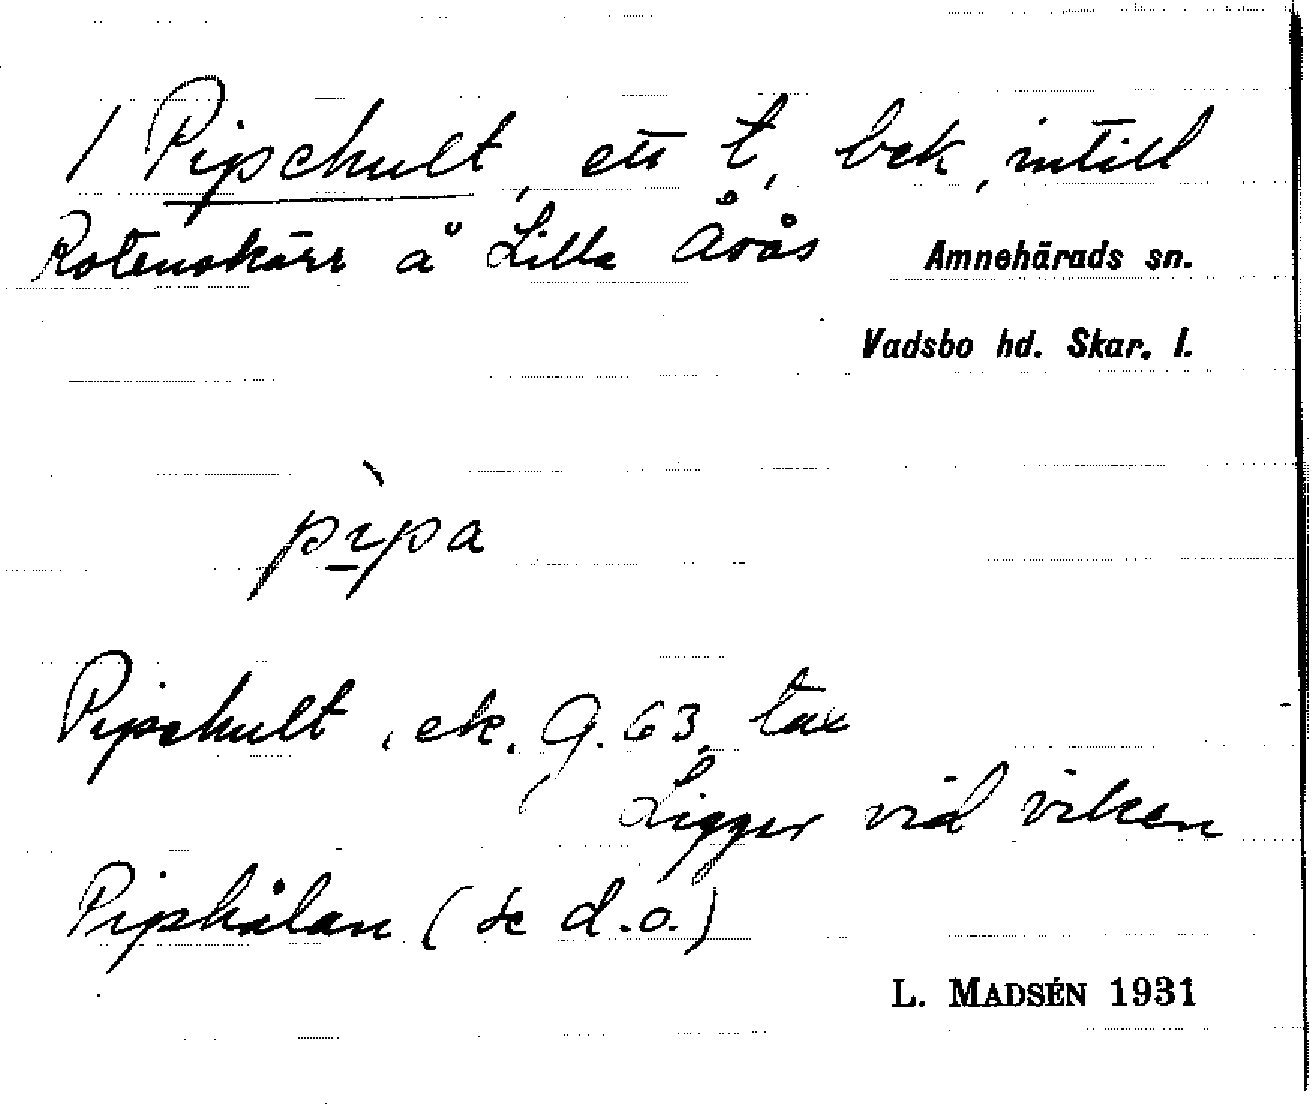 1 Pipschult, ett t, bek, intill
Rotenskärr å Lilla Årås
Amnehärads sn.
Vadsbo hd. Skar. l.
pìpa
Pipschult, ek. 9.63, tax
Ligger vid viken
Piphålan (se d.o.)
L. MADSÉN 1931